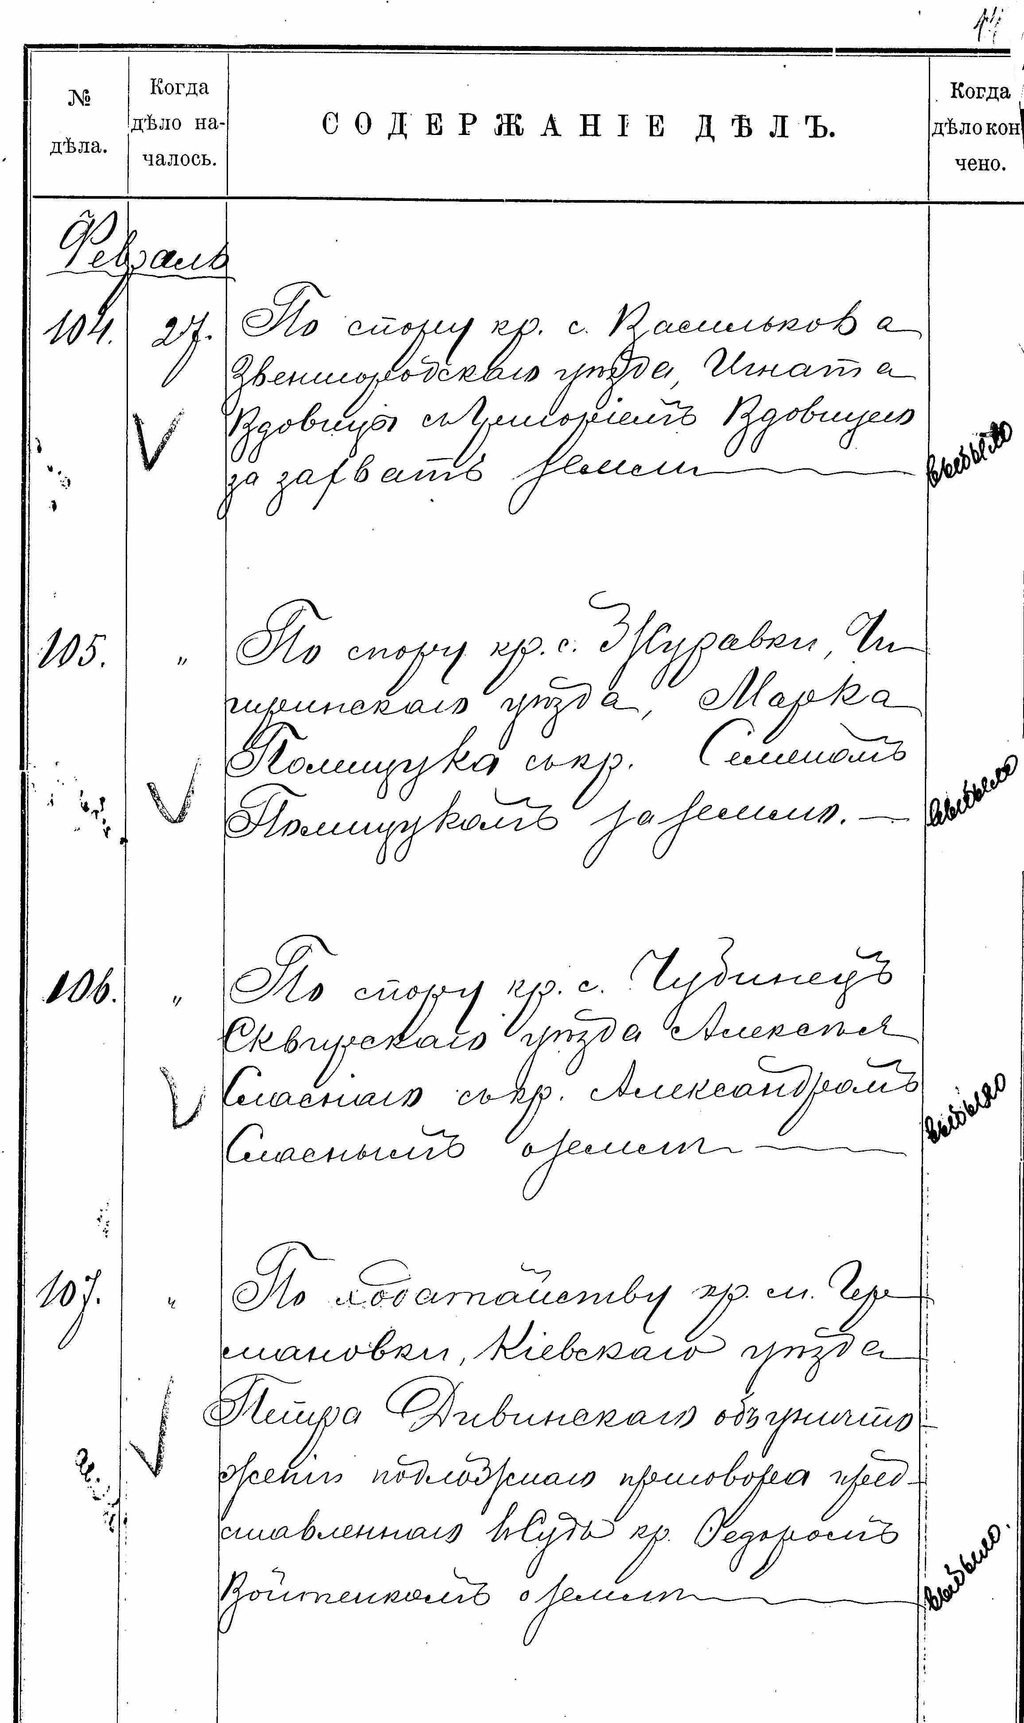 44
№ дѣла.
Когда дѣло на-
чалось.
СОДЕРЖАНІЕ ДѢЛЪ.
Когда дѣло кон
чено.
Февраль
104. 27. По спору кр. с. Васильков а
Звенигородскаго уѣзда, Игната
Вдовиця съ Григоріемъ Вдовицею
за захватъ земли выбыло
105. „ По спору кр. с. Журавки, Чи
гиринскаго уѣзда, Марка
Полищука съ кр. Семеномъ
Полищукомъ за землю. — выбыло
106. „ По спору кр. с. Чубинецъ
Сквирскаго уѣзда Алексѣя
Сласнаго съ кр. Александромъ
Сласнымъ о земли выбыло
107. „ По ходатайству кр. м. Гер
мановки, Кіевскаго уѣзда
Петра Дивинскаго объ уничто-
женіи подложнаго приговора пред-
ставленнаго въ Судъ кр. Федоромъ
Войтенкомъ о земли выбыло.